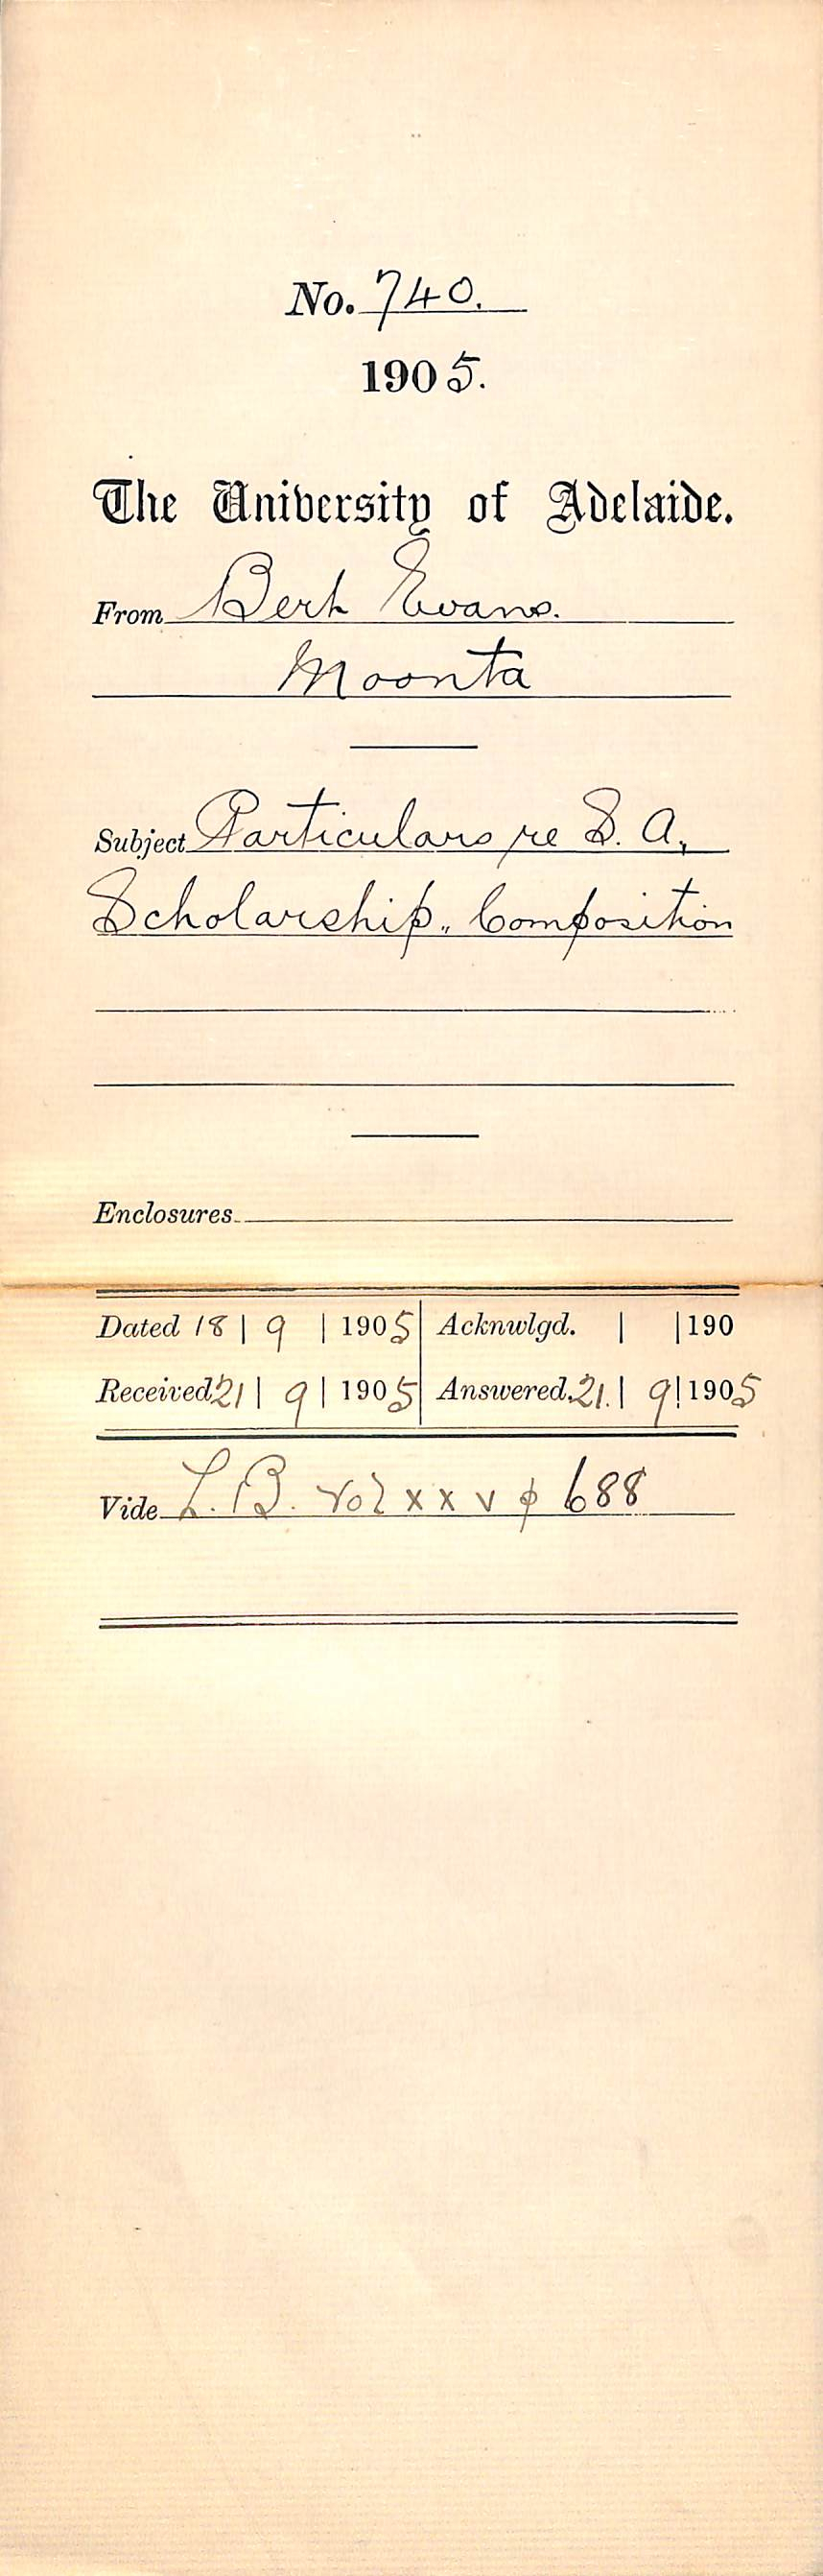 No. 740.
1905.
The University of Adelaide.
From Bert Evans.
Moonta
Subject Particulars re S. A.
Scholarship. Composition
Enclosures
Dated 18 | 9 | 1905 Acknwlgd. | | 190
Received 21 | 9 | 1905 Answered 21. | 9 | 1905
Vide L. B. Vol xxv p 688